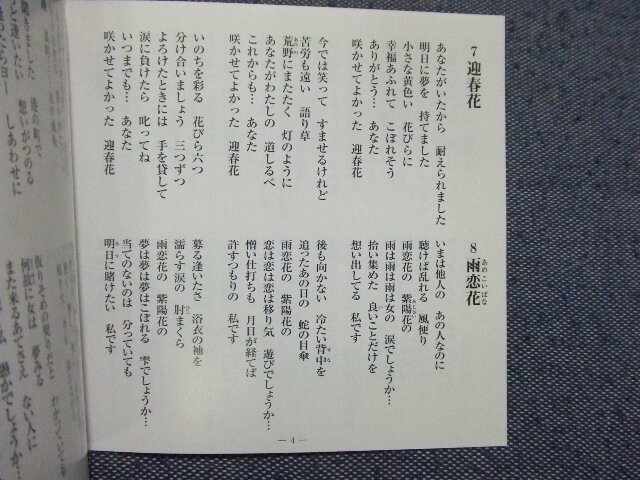 7 迎春花
あなたがいたから 耐えられました
明日に夢を 持てました
小さな黄色い 花びらに
幸福あふれて こぼれそう
ありがとう… あなた
咲かせてよかった 迎春花
今では笑って すませるけれど
苦労も遠い 語り草
荒野にまたたく 灯のように
あなたがわたしの 道しるべ
これからも… あなた
咲かせてよかった 迎春花
いのちを彩る 花びら六つ
分け合いましょう 三つずつ
よろけたときには 手を貸して
涙に負けたら 叱ってね
いつまでも… あなた
咲かせてよかった 迎春花
8 雨恋花
あめこいばな
いまは他人の あの人なのに
聴けば乱れる 風便り
雨恋花の 紫陽花の
雨は雨は雨は女の 涙でしょうか…
拾い集めた 良いことだけを
想い出してる 私です
後も向かない 冷たい背中を
追ったあの日の 蛇の目傘
雨恋花の 紫陽花の
恋は恋は恋は移り気 遊びでしょうか…
憎い仕打ちも 月日が経てば
許すつもりの 私です
募る逢いたさ 浴衣の袖を
濡らす涙の 肘まくら
雨恋花の 紫陽花の
夢は夢は夢はこぼれる 雫でしょうか…
当てのないのは 分っていても
明日に賭けたい 私です
— 4 —